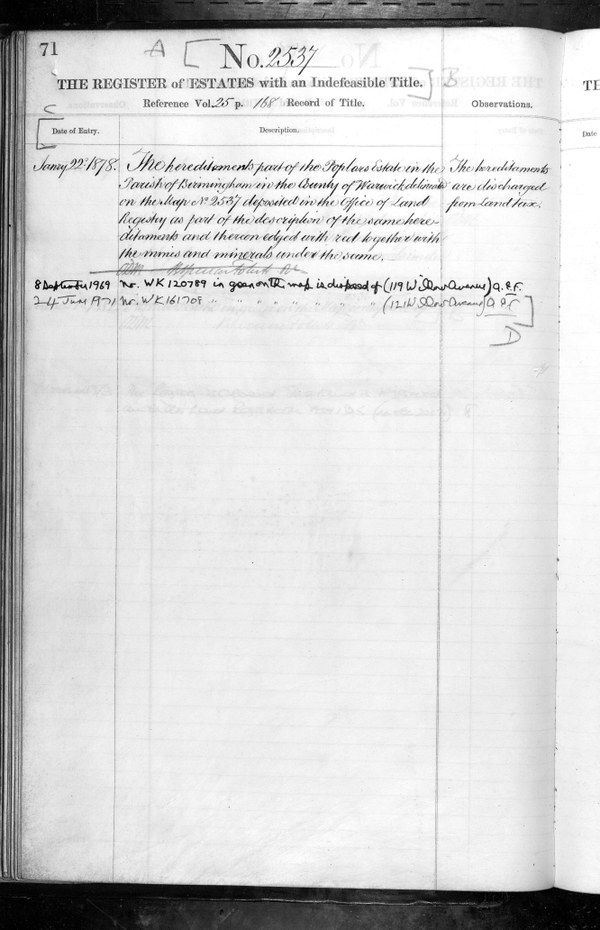 71
A [
No. 2537
THE REGISTER of ESTATES with an Indefeasible Title. ] B
Reference Vol. 25 p. 168 Record of Title.
Observations.
C
[ Date of Entry.
Description.
Janry 22d 1878.
The hereditaments part of the Poplars Estate in the
Parish of Birmingham in the County of Warwick delineated
on the Map No 2537 deposited in the Office of Land
Registry as part of the description of the same here-
ditaments and thereon edged with red together with
the mines and minerals under the same.
The hereditaments
are discharged
from land tax.
8 September 1969 No. WK 120789 in green on the map is disposed of (119 Willow Avenue) A.P.F.
24 June 1971 No. WK 161709 " " " " " " " (121 Willow Avenue) A.P.F. ]
D
TE
Date